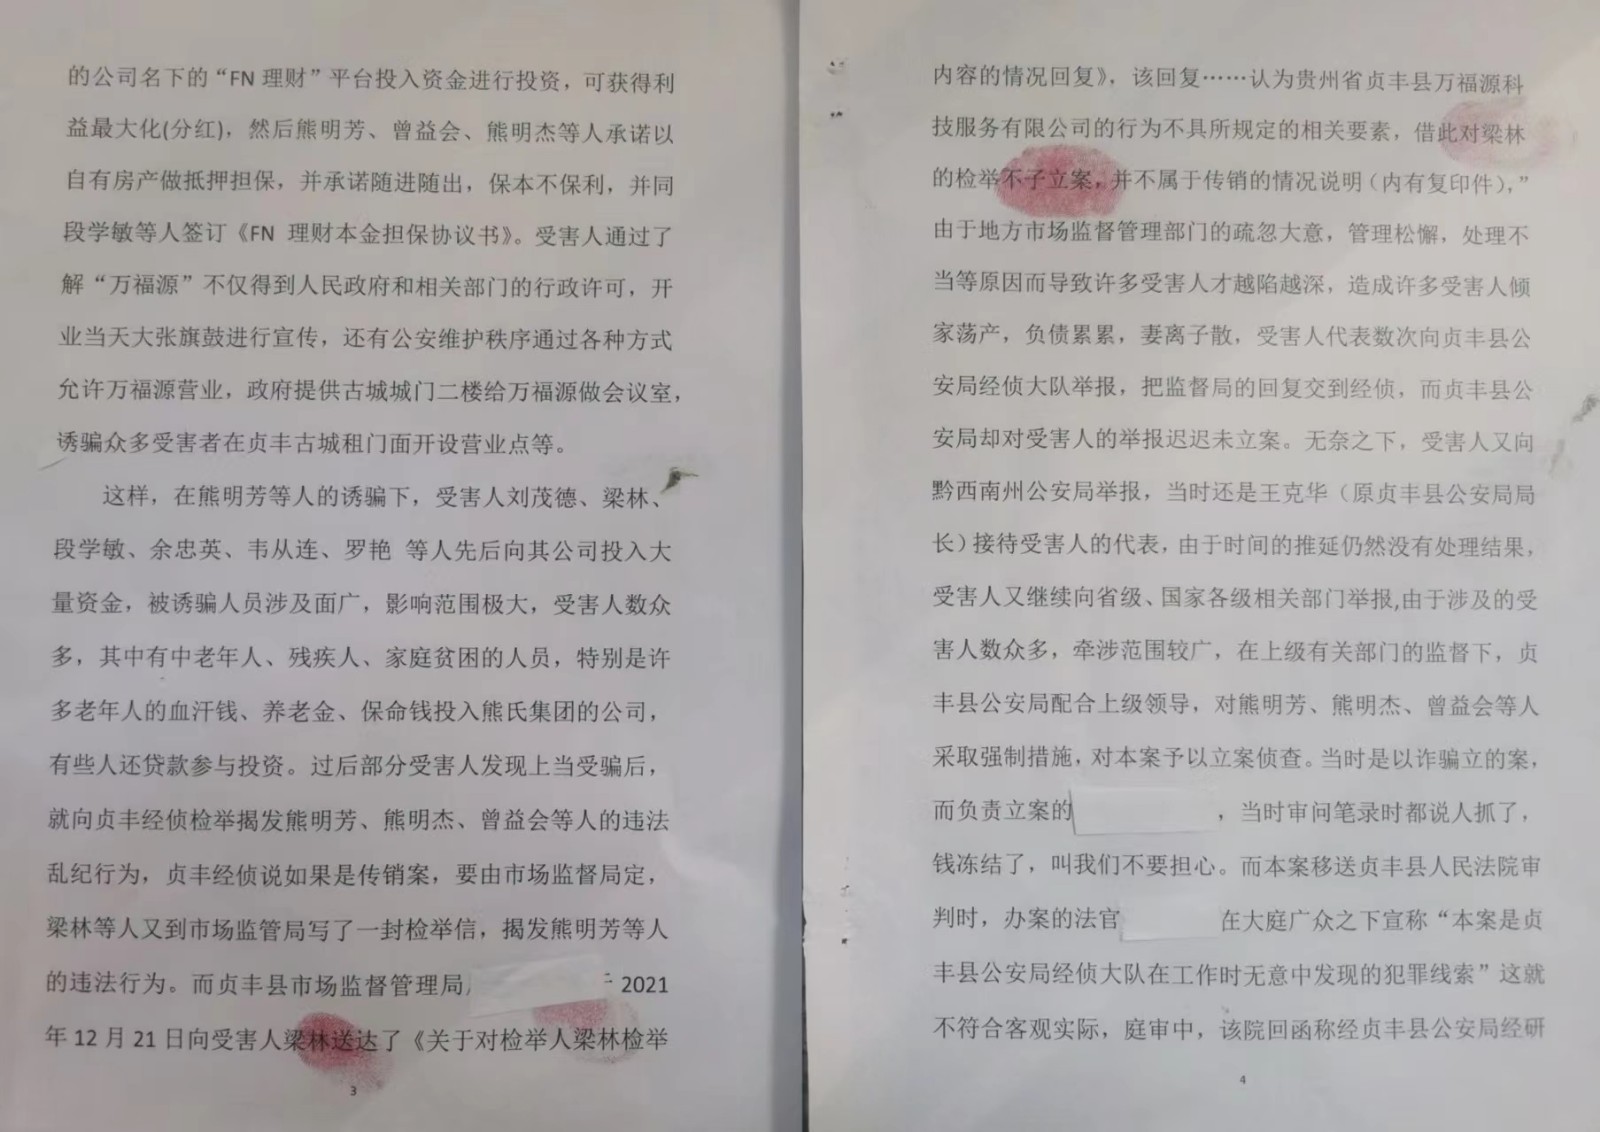 的公司名下的“FN 理财”平台投入资金进行投资，可获得利
益最大化(分红)，然后熊明芳、曾益会、熊明杰等人承诺以
自有房产做抵押担保，并承诺随进随出，保本不保利，并同
段学敏等人签订《FN 理财本金担保协议书》。受害人通过了
解“万福源”不仅得到人民政府和相关部门的行政许可，开
业当天大张旗鼓进行宣传，还有公安维护秩序通过各种方式
允许万福源营业，政府提供古城城门二楼给万福源做会议室，
诱骗众多受害者在贞丰古城租门面开设营业点等。
这样，在熊明芳等人的诱骗下，受害人刘茂德、梁林、
段学敏、余忠英、韦从连、罗艳 等人先后向其公司投入大
量资金，被诱骗人员涉及面广，影响范围极大，受害人数众
多，其中有中老年人、残疾人、家庭贫困的人员，特别是许
多老年人的血汗钱、养老金、保命钱投入熊氏集团的公司，
有些人还贷款参与投资。过后部分受害人发现上当受骗后，
就向贞丰经侦检举揭发熊明芳、熊明杰、曾益会等人的违法
乱纪行为，贞丰经侦说如果是传销案，要由市场监督局定，
梁林等人又到市场监管局写了一封检举信，揭发熊明芳等人
的违法行为。而贞丰县市场监督管理局 2021
年 12 月 21 日向受害人梁林送达了《关于对检举人梁林检举
3
内容的情况回复》，该回复……认为贵州省贞丰县万福源科
技服务有限公司的行为不具所规定的相关要素，借此对梁林
的检举不予立案，并不属于传销的情况说明（内有复印件），”
由于地方市场监督管理部门的疏忽大意，管理松懈，处理不
当等原因而导致许多受害人才越陷越深，造成许多受害人倾
家荡产，负债累累，妻离子散，受害人代表数次向贞丰县公
安局经侦大队举报，把监督局的回复交到经侦，而贞丰县公
安局却对受害人的举报迟迟未立案。无奈之下，受害人又向
黔西南州公安局举报，当时还是王克华（原贞丰县公安局局
长）接待受害人的代表，由于时间的推延仍然没有处理结果，
受害人又继续向省级、国家各级相关部门举报,由于涉及的受
害人数众多，牵涉范围较广，在上级有关部门的监督下，贞
丰县公安局配合上级领导，对熊明芳、熊明杰、曾益会等人
采取强制措施，对本案予以立案侦查。当时是以诈骗立的案，
而负责立案的 ，当时审问笔录时都说人抓了，
钱冻结了，叫我们不要担心。而本案移送贞丰县人民法院审
判时，办案的法官 在大庭广众之下宣称“本案是贞
丰县公安局经侦大队在工作时无意中发现的犯罪线索”这就
不符合客观实际，庭审中，该院回函称经贞丰县公安局经研
4